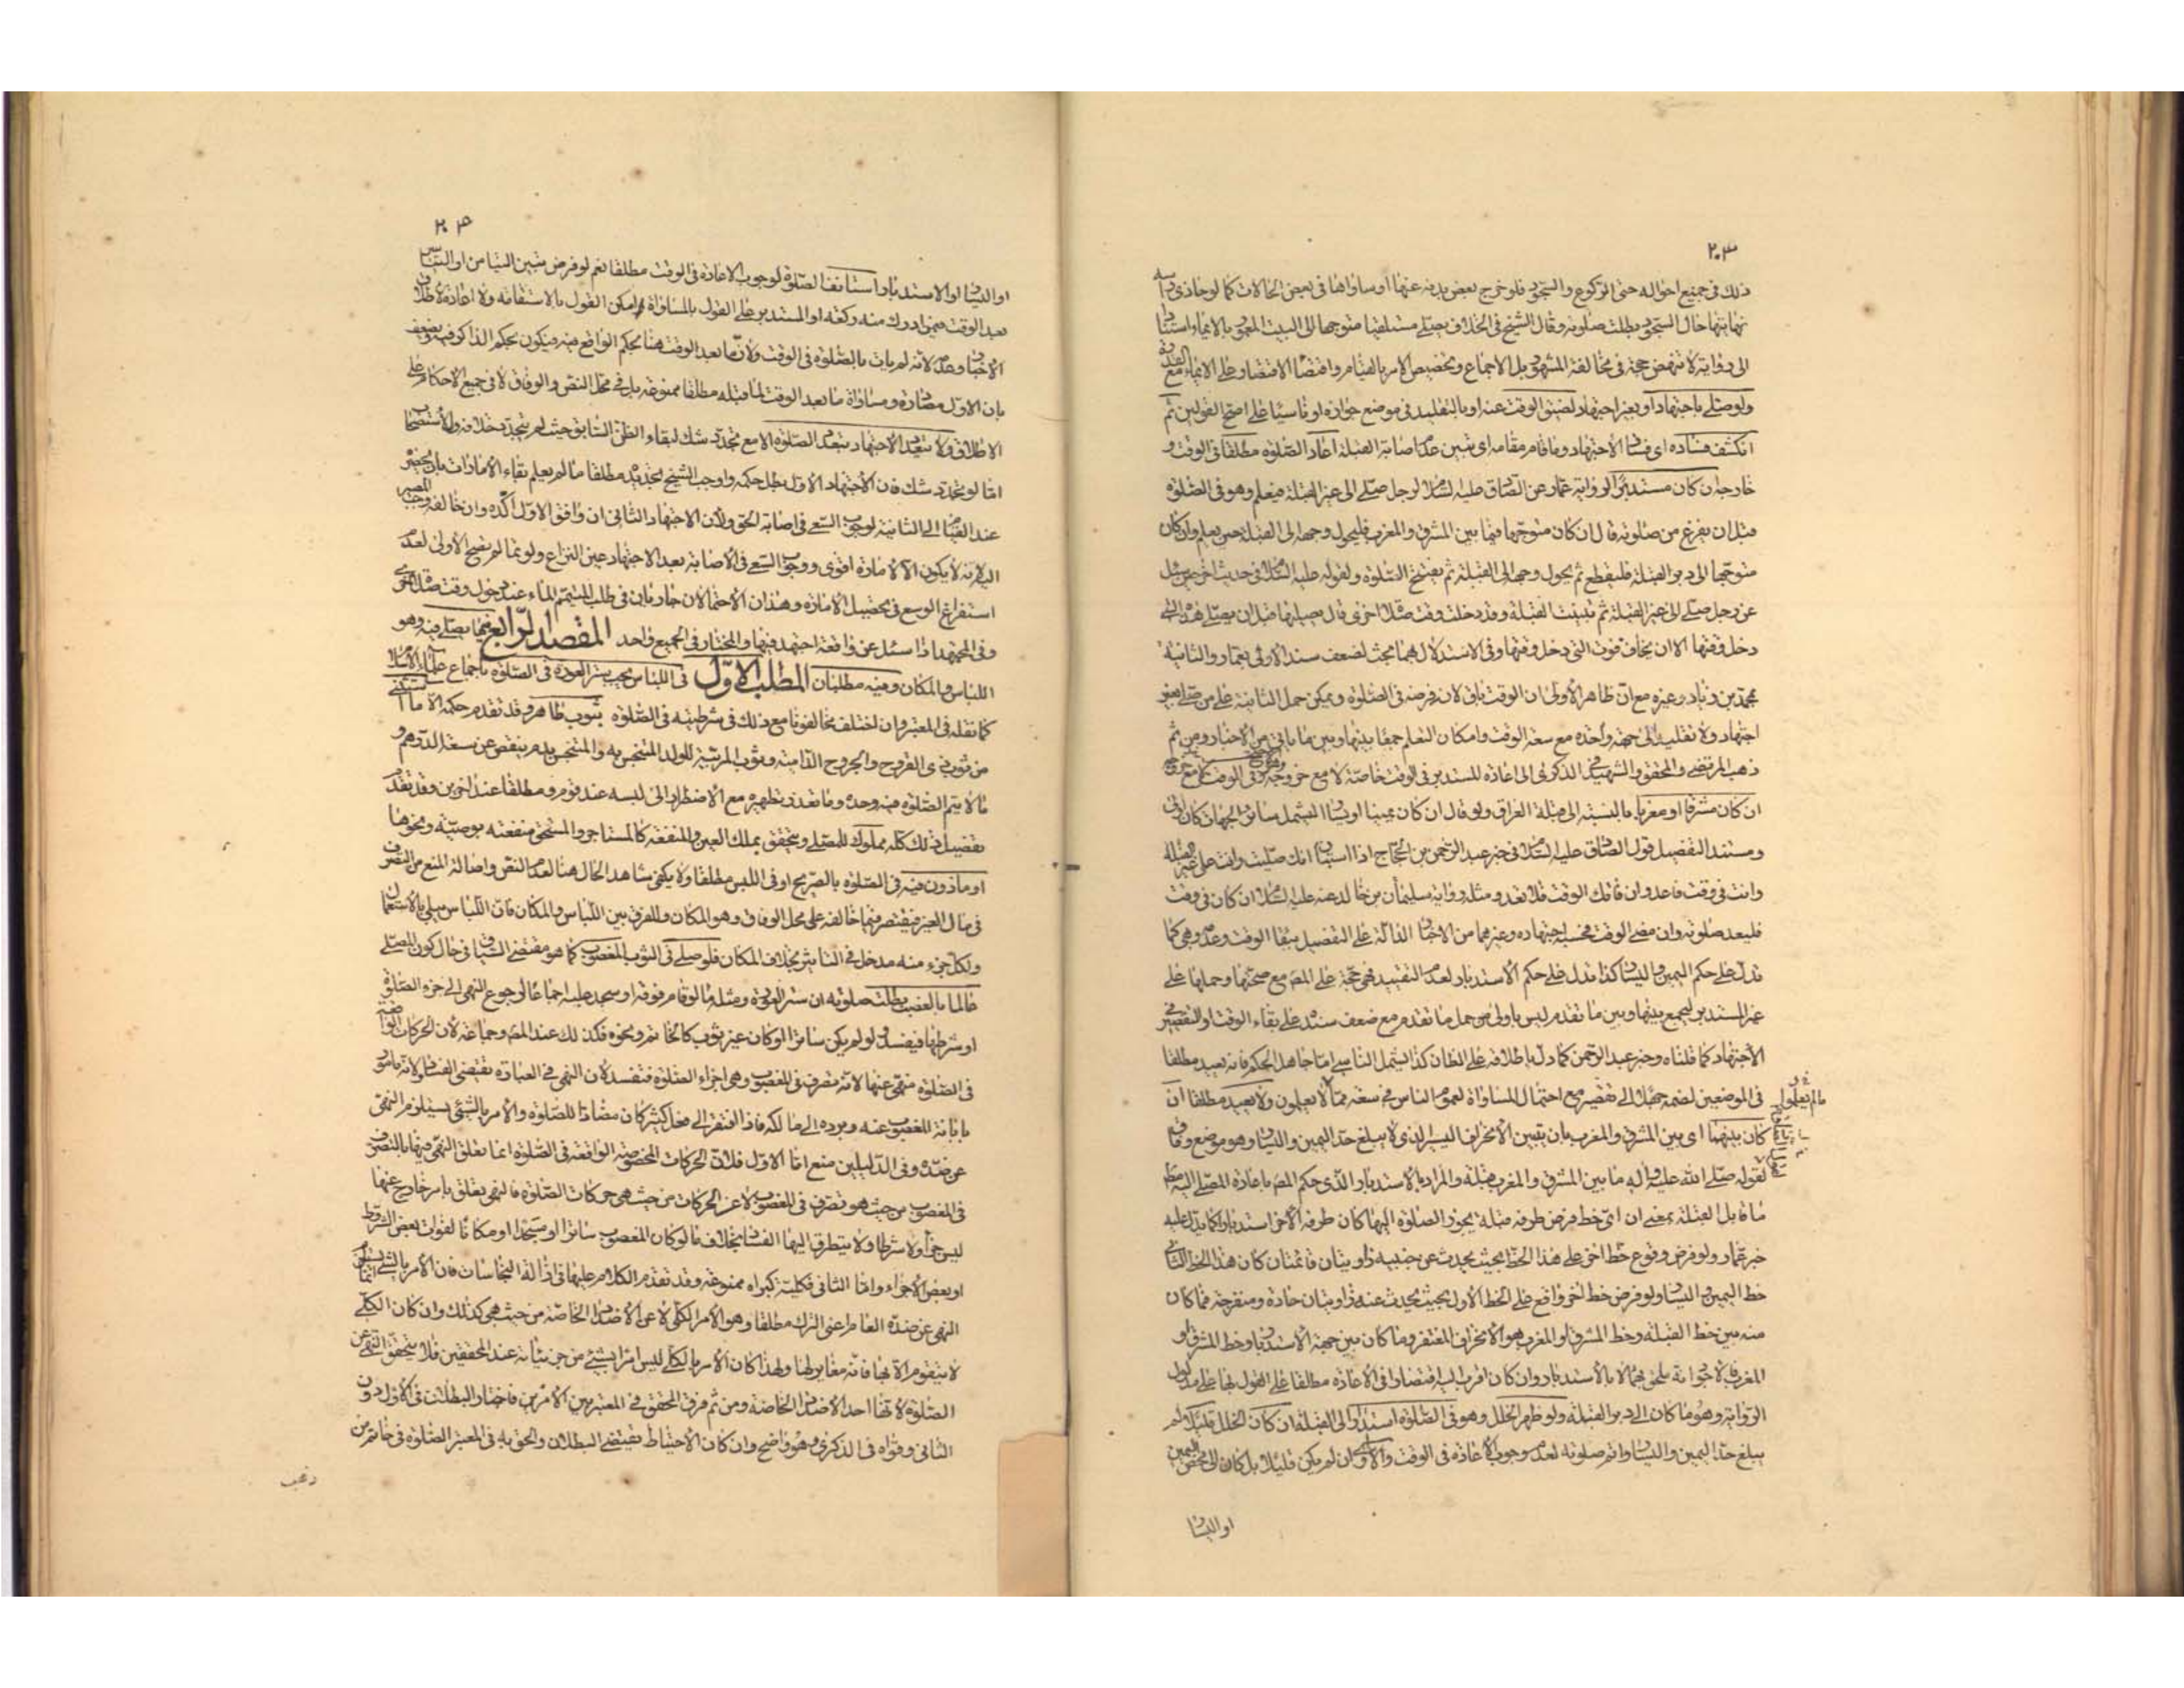 ٢٠٣
ذلك فى جميع احواله حتى الركوع والسجود فلو خرج بعض بدنه عنها او ساواها فى بعض الحالات كما لو حاذى راسه
نهايتها حال السجود بطلت صلوته وقال الشيخ فى الخلاف يصلى مستلقيا متوجها الى البيت المعمور بالايماء استنادا
الى رواية لا تنهض حجة فى مخالفة المشهور بل الاجماع وتخصيص الامر بالقيام واقتضا الاقتصار على الايماء مع القدرة
ولو صلى باجتهاد او بغير اجتهاد لضيق الوقت عنه او بالتقليد فى موضع جوازه او ناسيا على اصح القولين ثم
انكشف فساده اى فساد الاجتهاد وما قام مقامه اى تبين عدم اصابة القبلة اعاد الصلوة مطلقا فى الوقت و
خارجه ان كان مستدبرا لرواية عمار عن الصادق عليه السلام لرجل صلى الى غير القبلة فيعلم وهو فى الصلوة
قبل ان يفرغ من صلوته قال ان كان متوجها فيما بين المشرق والمغرب فليحول وجهه الى القبلة حين يعلم وان كان
متوجها الى دبر القبلة فليقطع ثم يحول وجهه الى القبلة ثم يفتتح الصلوة ولقوله عليه السلام فى حديث اخر حين سئل
عن رجل صلى الى غير القبلة ثم تبينت القبلة وقد دخلت وقت صلاة اخرى قال يصليها قبل ان يصلى هذه التى
دخل وقتها الا ان يخاف فوت التى دخل وقتها وفى الاستدلال بهما بحث لضعف سند الاولى بعمار والثانية
بمحمد بن زياد وغيره مع ان ظاهر الاولى ان الوقت باق لان فرضه فى الصلوة ويمكن حمل الثانية على من صلى بغير
اجتهاد ولا تقليد الى جهة واحدة مع سعة الوقت وامكان التعلم جمعا بينها وبين ما ياتى من الاخبار ومن ثم
ذهب المرتضى والمحقق والشهيد فى الذكرى الى اعادة المستدبر فى الوقت خاصة لا مع خروجه وفى الوقت لا مع خروجه
ان كان مشرقا او مغربا بالنسبة الى قبلة العراق ولو قال ان كان يمينا او يسارا لشمل سائر الجهات كان اولى
ومستند التفصيل قول الصادق عليه السلام فى خبر عبد الرحمن بن الحجاج اذا استبان انك صليت وانت على غير القبلة
وانت فى وقت فاعد وان فاتك الوقت فلا تعد ومثله رواية سليمان بن خالد عنه عليه السلام ان كان فى وقت
فليعد صلوته وان مضى الوقت فحسبه اجتهاده وغيرهما من الاخبار الدالة على التفصيل ببقاء الوقت وعدمه وهى كما
تدل على حكم اليمين واليسار كذا تدل على حكم الاستدبار لعدم التقييد فهى حجة على المصنف مع صحتها وحملها على
غير المستدبر للجمع بينها وبين ما تقدم ليس باولى من حمل ما تقدم مع ضعف سنده على بقاء الوقت او التقصير فى
الاجتهاد كما قلناه وخبر عبد الرحمن كما دل باطلاقه على الظان كذا يشمل الناسى اما جاهل الحكم فانه يعيد مطلقا
فى الموضعين لضمه جهلا الى تقصير مع احتمال المساواة لعموم الناس فى سعة مما لا يعلمون ولا يعيد مطلقا ان
ما لم يعلموا
كان بينهما اى بين المشرق والمغرب بان يتبين الانحراف اليسير الذى لا يبلغ حد اليمين واليسار وهو موضع وفاق
لقوله صلى الله عليه واله ما بين المشرق والمغرب قبلة والمراد بالاستدبار الذى حكم المص باعادة المصلى اليه مطلقا
ما قابل القبلة بمعنى ان اى خط فرض طرفه قبلة يجوز الصلوة اليها كان طرفه الاخر استدبارا كما يدل عليه
خبر عمار ولو فرض وقوع خط اخر على هذا الخط بحيث يحدث عن جنبيه زاويتان قائمتان كان هذا الخط الثانى
خط اليمين واليسار ولو فرض خط اخر واقع على الخط الاول بحيث يحدث عنه زاويتان حادة ومنفرجة فما كان
منه بين خط القبلة وخط المشرق او المغرب هو الانحراف المغتفر وما كان بين جهة الاستدبار وخط المشرق او
المغرب فالاجزائه يلحق بهما لا بالاستدبار وان كان اقرب اليه اقتصارا فى الاعادة مطلقا على القول بها على مدلول
الرواية وهو ما كان الى دبر القبلة ولو ظهر الخلل وهو فى الصلوة استدار الى القبلة ان كان الخلل قليلا لم
يبلغ حد اليمين واليسار واتم صلوته لعدم وجوب الاعادة فى الوقت والا اى وان لم يكن قليلا بل كان الى محض اليمين
او اليسار
٢٠٤
او اليسار او الاستدبار استانف الصلوة لوجوب الاعادة فى الوقت مطلقا نعم لو فرض تبين التيامن او التياسر
بعد الوقت فيمن ادرك منه ركعة او المستدبر على القول بالمساواة امكن القول بالاستقامة ولا اعادة لاطلاق
الاخبار وعدمه لانه لم يات بالصلوة فى الوقت ولان ما بعد الوقت هنا بحكم الواقع فيه فيكون بحكم الذاكر فيه ويضعف
بان الاول مصادرة ومساواة ما بعد الوقت لما قبله مطلقا ممنوعة بل فى محل النص والوفاق لا فى جميع الاحكام على
الاطلاق ولا يتعدد الاجتهاد بتعدد الصلوة الا مع تجدد شك لبقاء الظن السابق حيث لم يتجدد خلافه والاستصحاب
اما لو تجدد شك فان الاجتهاد الاول بطل حكمه واوجب الشيخ تجديده مطلقا ما لم يعلم بقاء الامارات بان يحضر
عند القيام الى الثانية لوجوب السعى فى اصابة الحق ولان الاجتهاد الثانى ان وافق الاول اكده وان خالفه وجب المصير
اليه لانه لا يكون الا لامارة اقوى ووجوب السعى فى الاصابة بعد الاجتهاد عين النزاع ولو تمما لم يفتح الاولى لعدم
استفراغ الوسع فى تحصيل الامارة وهذان الاحتمالان جاريان فى طلب المتيمم الماء عند دخول وقت صلاة اخرى
وفى المجتهد اذا سئل عن واقعة اجتهد فيها والمختار فى الجميع واحد المقصد الرابع فيما يصلى فيه وهو
اللباس والمكان وفيه مطلبان المطلب الاول فى اللباس يجب ستر العورة فى الصلوة باجماع علماء الاسلام
كما نقله فى المعتبر وان اختلف مخالفونا مع ذلك فى شرطيته فى الصلوة بثوب طاهر وقد تقدم حكمه الا ما استثنى
من ثوب ذى القروح والجروح الدامية وثوب المربية للولد المتنجس به والمتنجس بدم ينقص عن سعة الدرهم و
ما لا يتم الصلوة فيه وحده وما تعذر تطهيره مع الاضطرار الى لبسه عند قوم ومطلقا عند اخرين وقد تقدم
تفصيل ذلك كله مملوك للمصلى ويتحقق بملك العين والمنفعة كالمستاجر والمستحق منفعته بوصية ونحوها
او ماذون فيه فى الصلوة بالصريح او فى اللبس مطلقا ولا يكفى شاهد الحال هنا لعدم النص واصالة المنع من التصرف
فى مال الغير فيقتصر فيما خالفه على محل الوفاق وهو المكان وللفرق بين اللباس والمكان فان اللباس يبلى بالاستعمال
ولكل جزء منه مدخل فى التاثير بخلاف المكان فلو صلى فى الثوب المغصوب كما هو مقتضى السياق حال كون المصلى
عالما بالغصب بطلت صلوته ان ستر العورة ومثله ما لو قام فوقه او سجد عليه اجماعا لرجوع النهى الى جزء الصلوة
او شرطها فيفسد ولو لم يكن ساترا او كان غير ثوب كالخاتم ونحوه فكذلك عند المص وجماعة لان الحركات الواقعة
فى الصلوة منهى عنها لانه تصرف فى المغصوب وهى اجزاء الصلوة فتفسد لان النهى فى العبادة يقتضى الفساد ولانه مامور
بابانة المغصوب عنه ورده الى مالكه فاذا افتقر الى فعل كثير كان مضادا للصلوة والامر بالشئ يستلزم النهى
عن ضده وفى الدليلين منع اما الاول فلان الحركات المخصوصة الواقعة فى الصلوة انما يتعلق النهى فيها بالتصرف
فى المغصوب من حيث هو تصرف فى المغصوب لا عن الحركات من حيث هى حركات الصلوة فالنهى يتعلق بامر خارج عنها
ليس جزأ ولا شرطا ولا يتطرق اليها الفساد بخلاف ما لو كان المغصوب ساترا او مسجدا او مكانا لفوات بعض الشروط
او بعض الاجزاء واما الثانى فكلية كبراه ممنوعة وقد تقدم الكلام عليها فى ازالة النجاسات فان الامر بالشئ يستلزم
النهى عن ضده العام اعنى الترك مطلقا وهو الامر الكلى لا عن الاضداد الخاصة من حيث هى كذلك وان كان الكلى
لا يتقوم الا بها فانه مغاير لها ولهذا كان الامر بالكلى ليس امرا بشئ من جزئياته عند المحققين فلا يتحقق النهى عن
الصلوة لانها احد الاضداد الخاصة ومن ثم فرق المحقق فى المعتبر بين الامرين فاختار البطلان فى الاول دون
الثانى وقواه فى الذكرى وهو واضح وان كان الاحتياط يقتضى البطلان والحق به فى المعتبر الصلوة فى خاتم من
ذهب